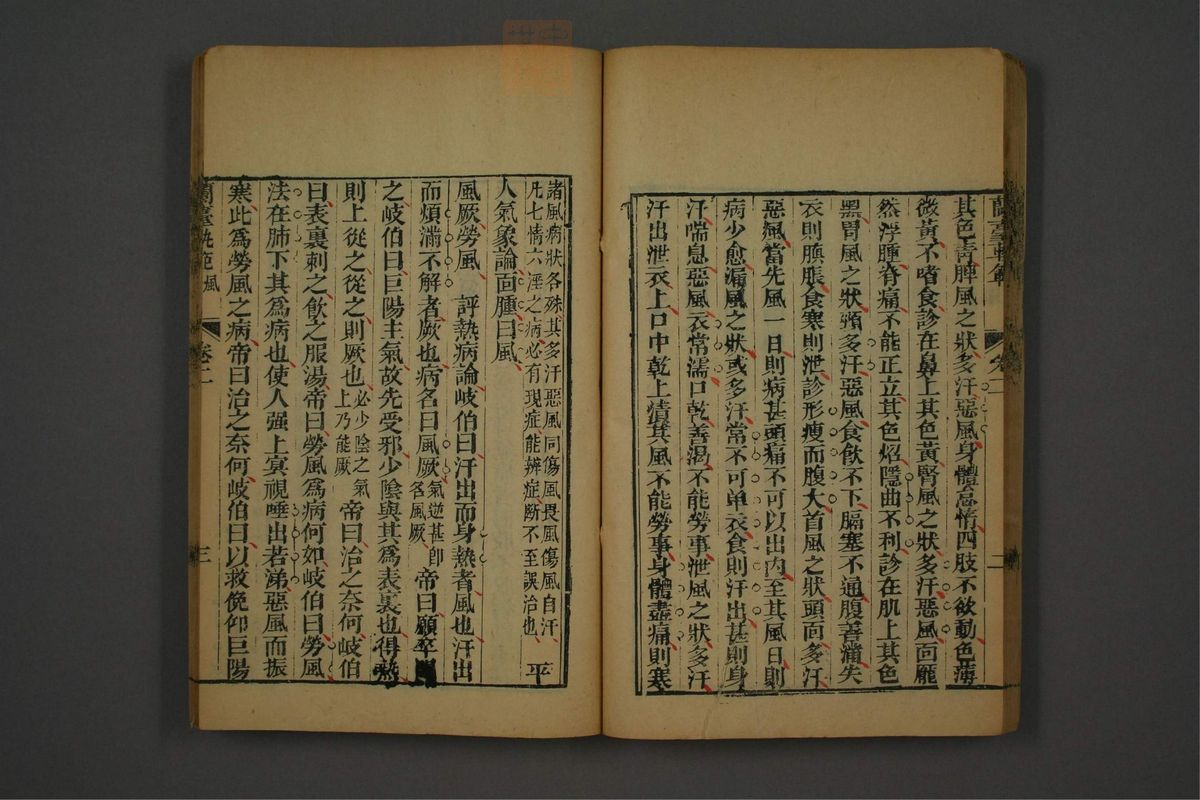 卷二 二
其色青脾風之狀多汗惡風身體怠惰四肢不欲動色薄
微黃不嗜食診在鼻上其色黃腎風之狀多汗惡風面龐
然浮腫脊痛不能正立其色炲隱曲不利診在肌上其色
黑胃風之狀頸多汗惡風食飲不下膈塞不通腹善滿失
衣則䐜脹食寒則泄診形瘦而腹大首風之狀頭面多汗
惡風當先風一日則病甚頭痛不可以出內至其風日則
病少愈漏風之狀或多汗常不可单衣食則汗出甚則身
汗喘息惡風衣常濡口乾善渴不能勞事泄風之狀多汗
汗出泄衣上口中乾上漬其風不能勞事身體盡痛則寒
諸風病狀各殊其多汗惡風同傷風畏風傷風自汗
凡七情六淫之病必有現症能辨症斷不至誤治也 平
人氣象論面腫曰風
風厥勞風 評熱病論岐伯曰汗出而身熱者風也汗出
而煩滿不解者厥也病名曰風厥氣逆甚卽名風厥帝曰願卒聞
之岐伯曰巨陽主氣故先受邪少陰與其爲表裏也得熱
則上從之從之則厥也必少陰之氣上乃能厥 帝曰治之奈何岐伯
曰表裏刺之飲之服湯帝曰勞風爲病何如岐伯曰勞風
法在肺下其爲病也使人強上冥視唾出若涕惡風而振
寒此爲勞風之病帝曰治之奈何岐伯曰以救俛仰巨陽
蘭臺軌範風 卷二 三